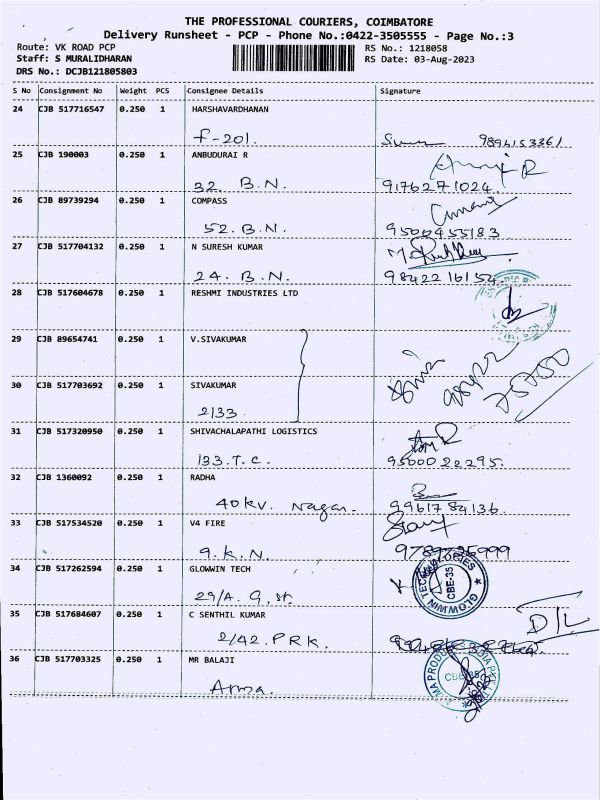 THE PROFESSIONAL COURIERS, COIMBATORE
Delivery Runsheet - PCP - Phone No.:0422-3505555 - Page No.:3
Route: VK ROAD PCP
Staff: S MURALIDHARAN
DRS No.: DCJB121805803
RS No.: 1218058
RS Date: 03-Aug-2023
S No Consignment No Weight PCS Consignee Details Signature
24 CJB 517716547 0.250 1 HARSHAVARDHANAN
F-201.
25 CJB 190003 0.250 1 ANBUDURAI R
32. B.N. 9176271024
26 CJB 89739294 0.250 1 COMPASS
52. B.N. 9500455183
27 CJB 517704132 0.250 1 N SURESH KUMAR
24. B.N. 9842216154
28 CJB 517604678 0.250 1 RESHMI INDUSTRIES LTD
29 CJB 89654741 0.250 1 V.SIVAKUMAR
30 CJB 517703692 0.250 1 SIVAKUMAR
2133
31 CJB 517320950 0.250 1 SHIVACHALAPATHI LOGISTICS
133.T.C. 9500022295.
32 CJB 1360092 0.250 1 RADHA
40 KV. Nagar. 9961784136.
33 CJB 517534520 0.250 1 V4 FIRE
9.K.N.
34 CJB 517262594 0.250 1 GLOWWIN TECH
29/A. G. st.
GLOWWIN TECHNOLOGIES CBE-35
35 CJB 517684607 0.250 1 C SENTHIL KUMAR
2/42. PRK.
36 CJB 517703325 0.250 1 MR BALAJI
Amma.